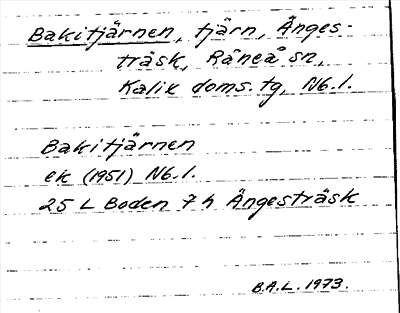 Bakitjärnen, tjärn, Änges-
träsk, Råneå sn,
Kalix doms. tg, Nb. l.
Bakitjärnen
ek (1951) Nb. l.
25 L Boden 7 h Ängesträsk
B.A.L. 1973.